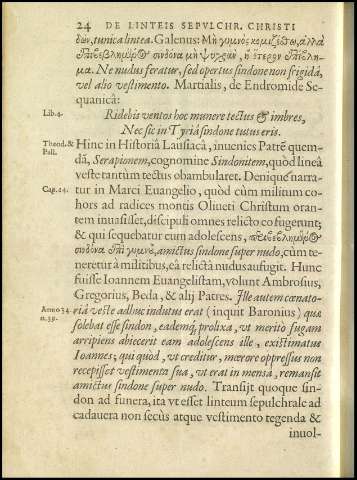 24 DE LINTEIS SEPVLCHR. CHRISTI
δών, tunica lintea. Galenus: Μὴ γυμνὸς κομιζέσθω, ἀλλὰ
περιβεβλημένος σινδόνα μὴ ψυχρὰν, ἢ ἕτερον ἐπίβλη-
μα. Ne nudus feratur, sed opertus sindone non frigidâ,
vel alio vestimento. Martialis, de Endromide Se-
quanicâ:
Lib. 4. Ridebis ventos hoc munere tectus & imbres,
Nec sic in Tyriâ sindone tutus eris.
Theod. & Pall. Hinc in Historiâ Lausiacâ, inuenies Patrẽ quem-
dã, Serapionem, cognomine Sindonitem, quòd lineâ
veste tantùm tectus obambularet. Denique narra-
Cap. 14. tur in Marci Euangelio, quòd cùm militum co-
hors ad radices montis Oliueti Christum oran-
tem inuasisset, discipuli omnes relicto eo fugerunt;
& qui sequebatur eum adolescens, περιβεβλημένος
σινδόνα ἐπὶ γυμνοῦ, amictus sindone super nudo, cùm te-
neretur à militibus, eâ relictâ nudus aufugit. Hunc
fuisse Ioannem Euangelistam, volunt Ambrosius,
Gregorius, Beda, & alij Patres. Ille autem cœnato-
Anno 34. n. 39. riâ veste adhuc indutus erat (inquit Baronius) quæ
solebat esse sindon, eademq; prolixa, vt meritò fugam
arripiens abiecerit eam adolescens ille, existimatus
Ioannes; qui quòd, vt creditur, merore oppressus non
recepisset vestimenta sua, vt erat in mensa, remansit
amictus sindone super nudo. Transijt quoque sin-
don ad funera, ita vt esset linteum sepulchrale ad
cadauera non secùs atque vestimento tegenda &
inuol-